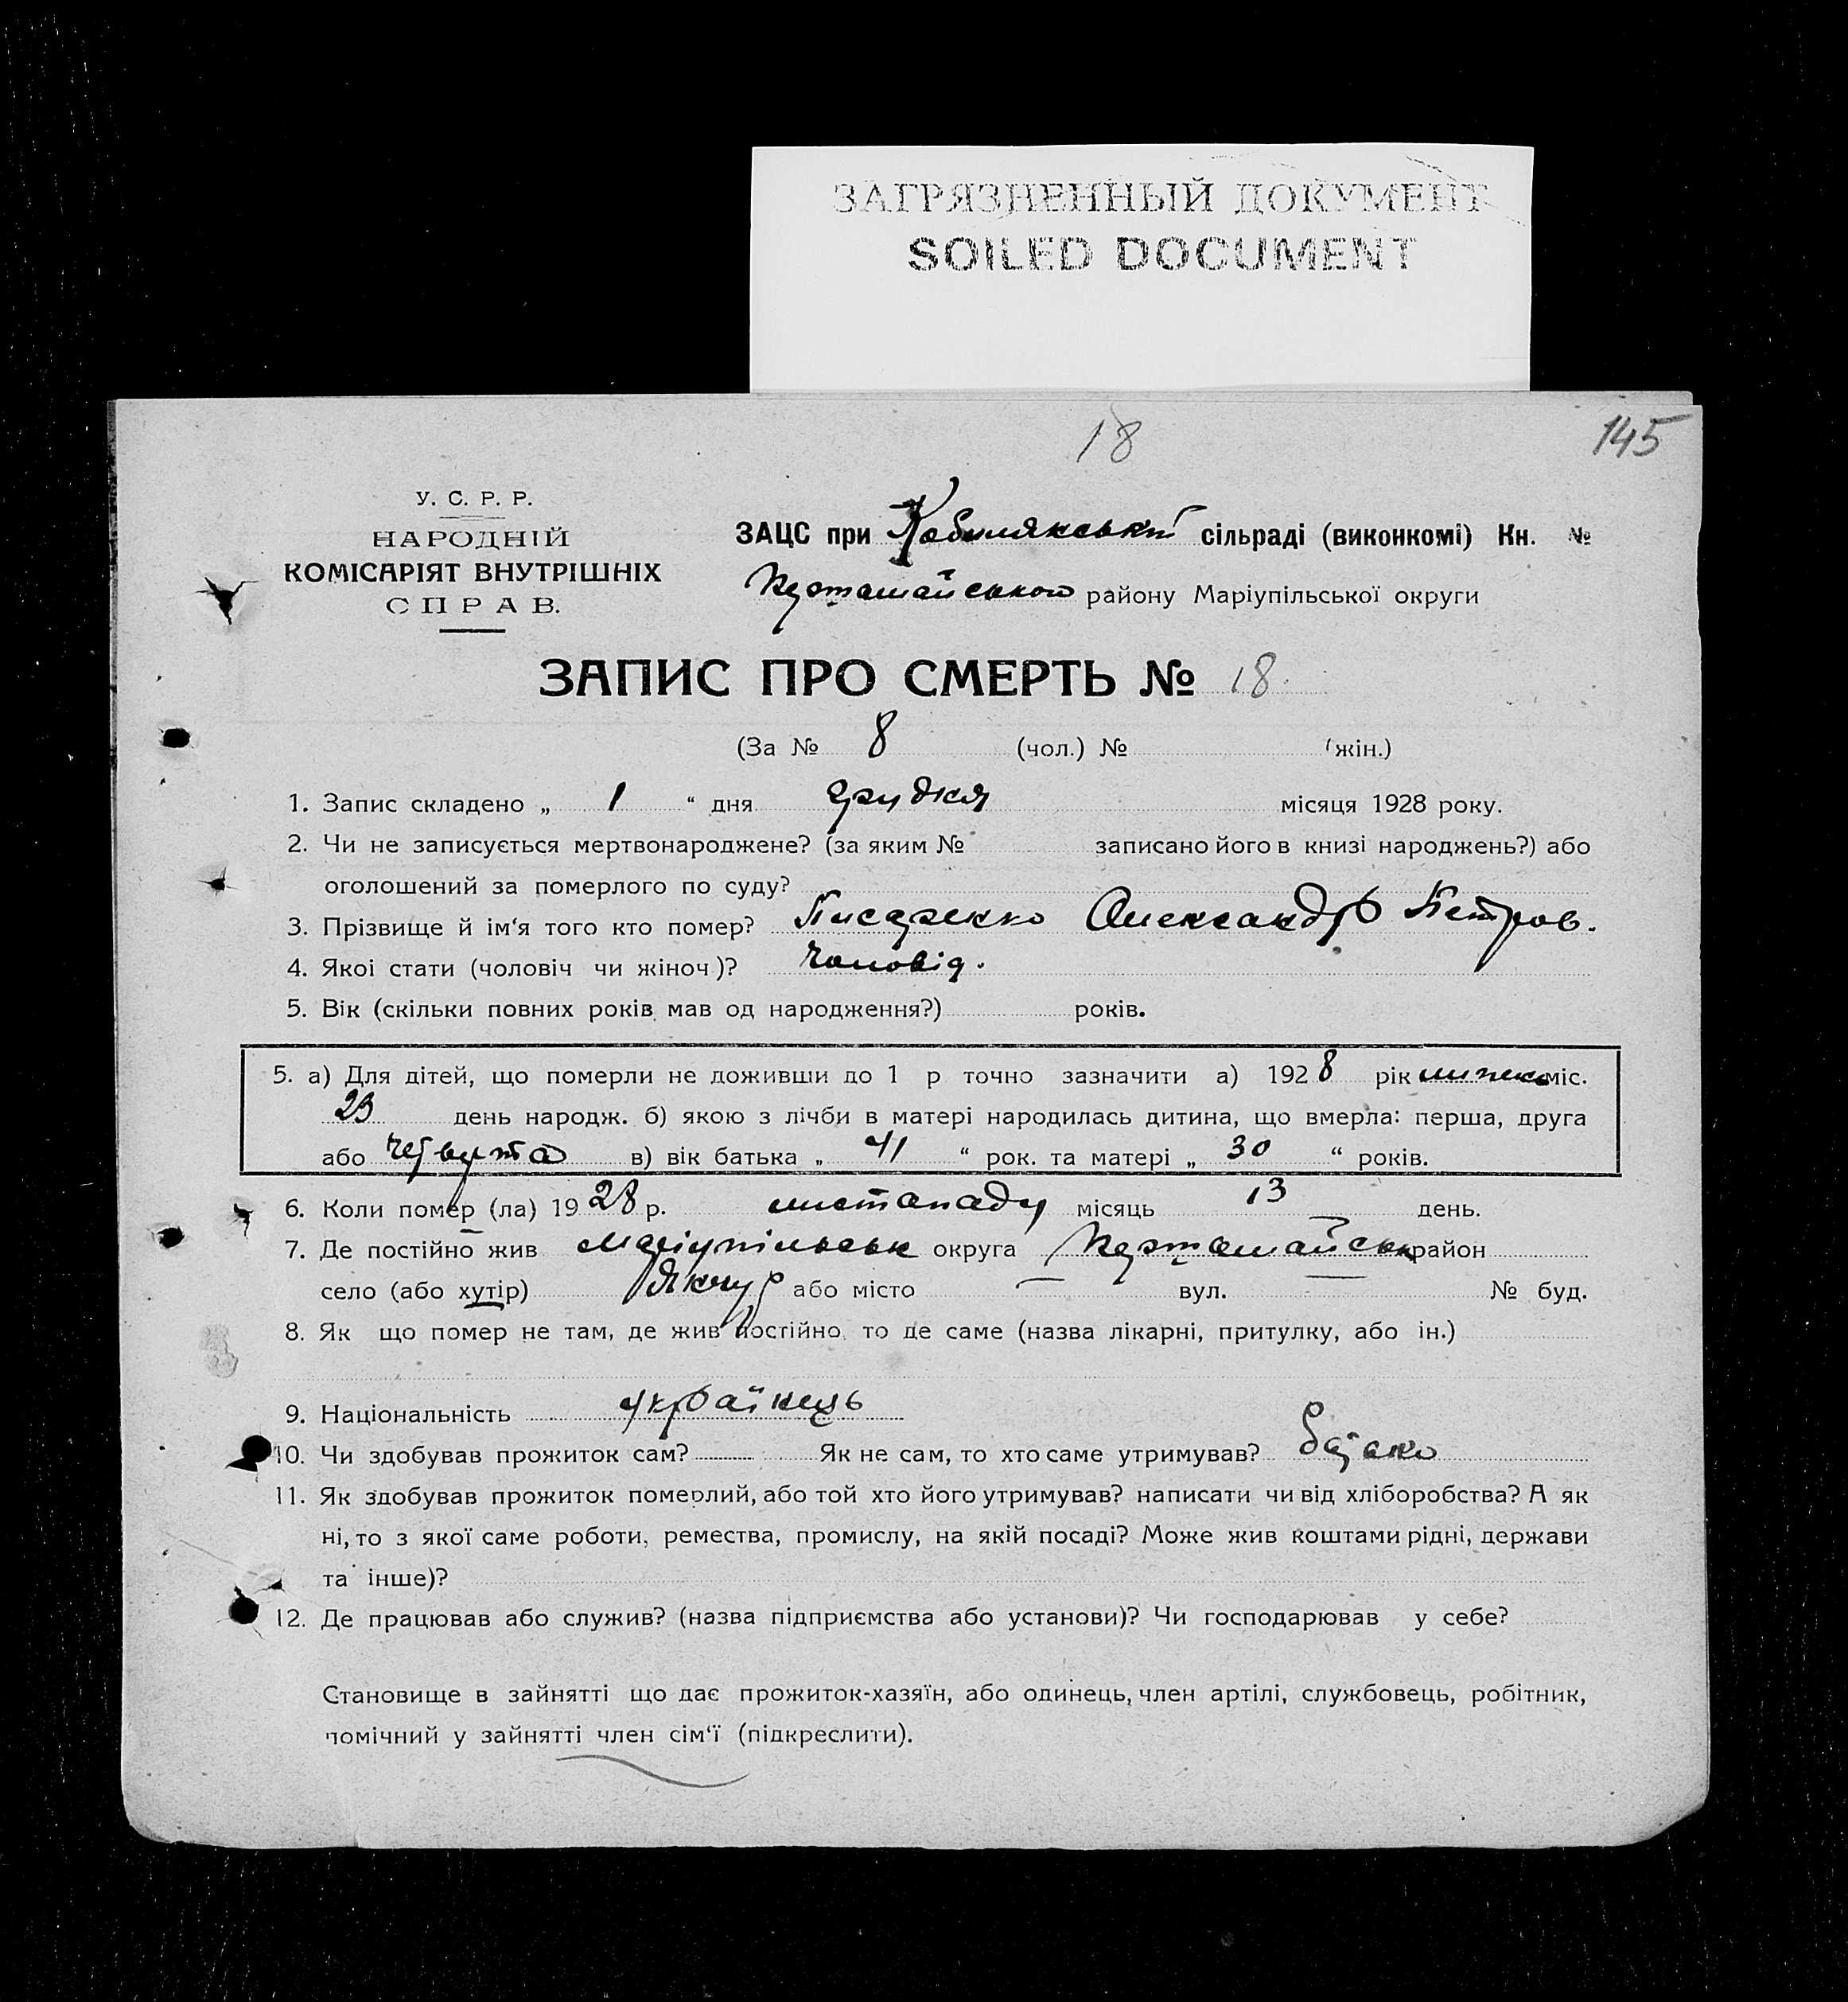 ЗАГРЯЗНЕННЫЙ ДОКУМЕНТ
SOILED DOCUMENT
18
145
У. С. Р. Р.
НАРОДНІЙ
КОМІСАРІЯТ ВНУТРІШНІХ
СПРАВ.
ЗАЦС при Кобилякській сільраді (виконкомі) Кн. №
району Маріупільської округи
ЗАПИС ПРО СМЕРТЬ № 18
(За № 8 (чол.) № (жін.)
1. Запис складено „ 1 “ дня грудня місяця 1928 року.
2. Чи не записується мертвонароджене? (за яким № записано його в книзі народжень?) або
оголошений за померлого по суду?
3. Прізвище й ім‘я того кто помер? Писаренко Олександр Петров.
4. Якоі стати (чоловіч чи жіноч)? чоловід.
5. Вік (скільки повних років мав од народження?) років.
5. а) Для дітей, що померли не доживши до 1 р точно зазначити а) 1928 рік липень міс.
23 день народж. б) якою з лічби в матері народилась дитина, що вмерла: перша, друга
або четверта в) вік батька „ 41 “ рок. та матері „ 30 “ років.
6. Коли помер (ла) 1928 р. листопаду місяць 13 день.
7. Де постійно жив Маріупільськ округа район
село (або хутір) або місто — вул. — № буд.
8. Як що помер не там, де жив постійно то де саме (назва лікарні, притулку, або ін.)
9. Національність українець
10. Чи здобував прожиток сам? Як не са́м, то хто саме утримував? батько
11. Як здобував прожиток померлий, або той хто його утримував? написати чи від хліборобства? А як
ні, то з якої саме роботи, ремества, промислу, на якій посаді? Може жив коштами рідні, держави
та інше)?
12. Де працював або служив? (назва підприємства або установи)? Чи господарював у себе?
Становище в зайнятті що дає прожиток-хазяїн, або одинець, член артілі, службовець, робітник,
помічний у зайнятті член сім‘ї (підкреслити).